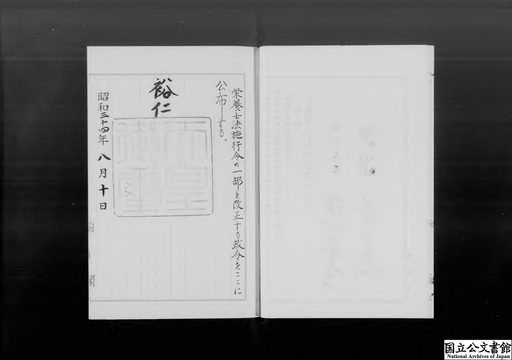 栄養士法施行令の一部を改正する政令をここに
公布する。
裕仁
天皇
御璽
昭和三十四年八月十日
国立公文書館
National Archives of Japan